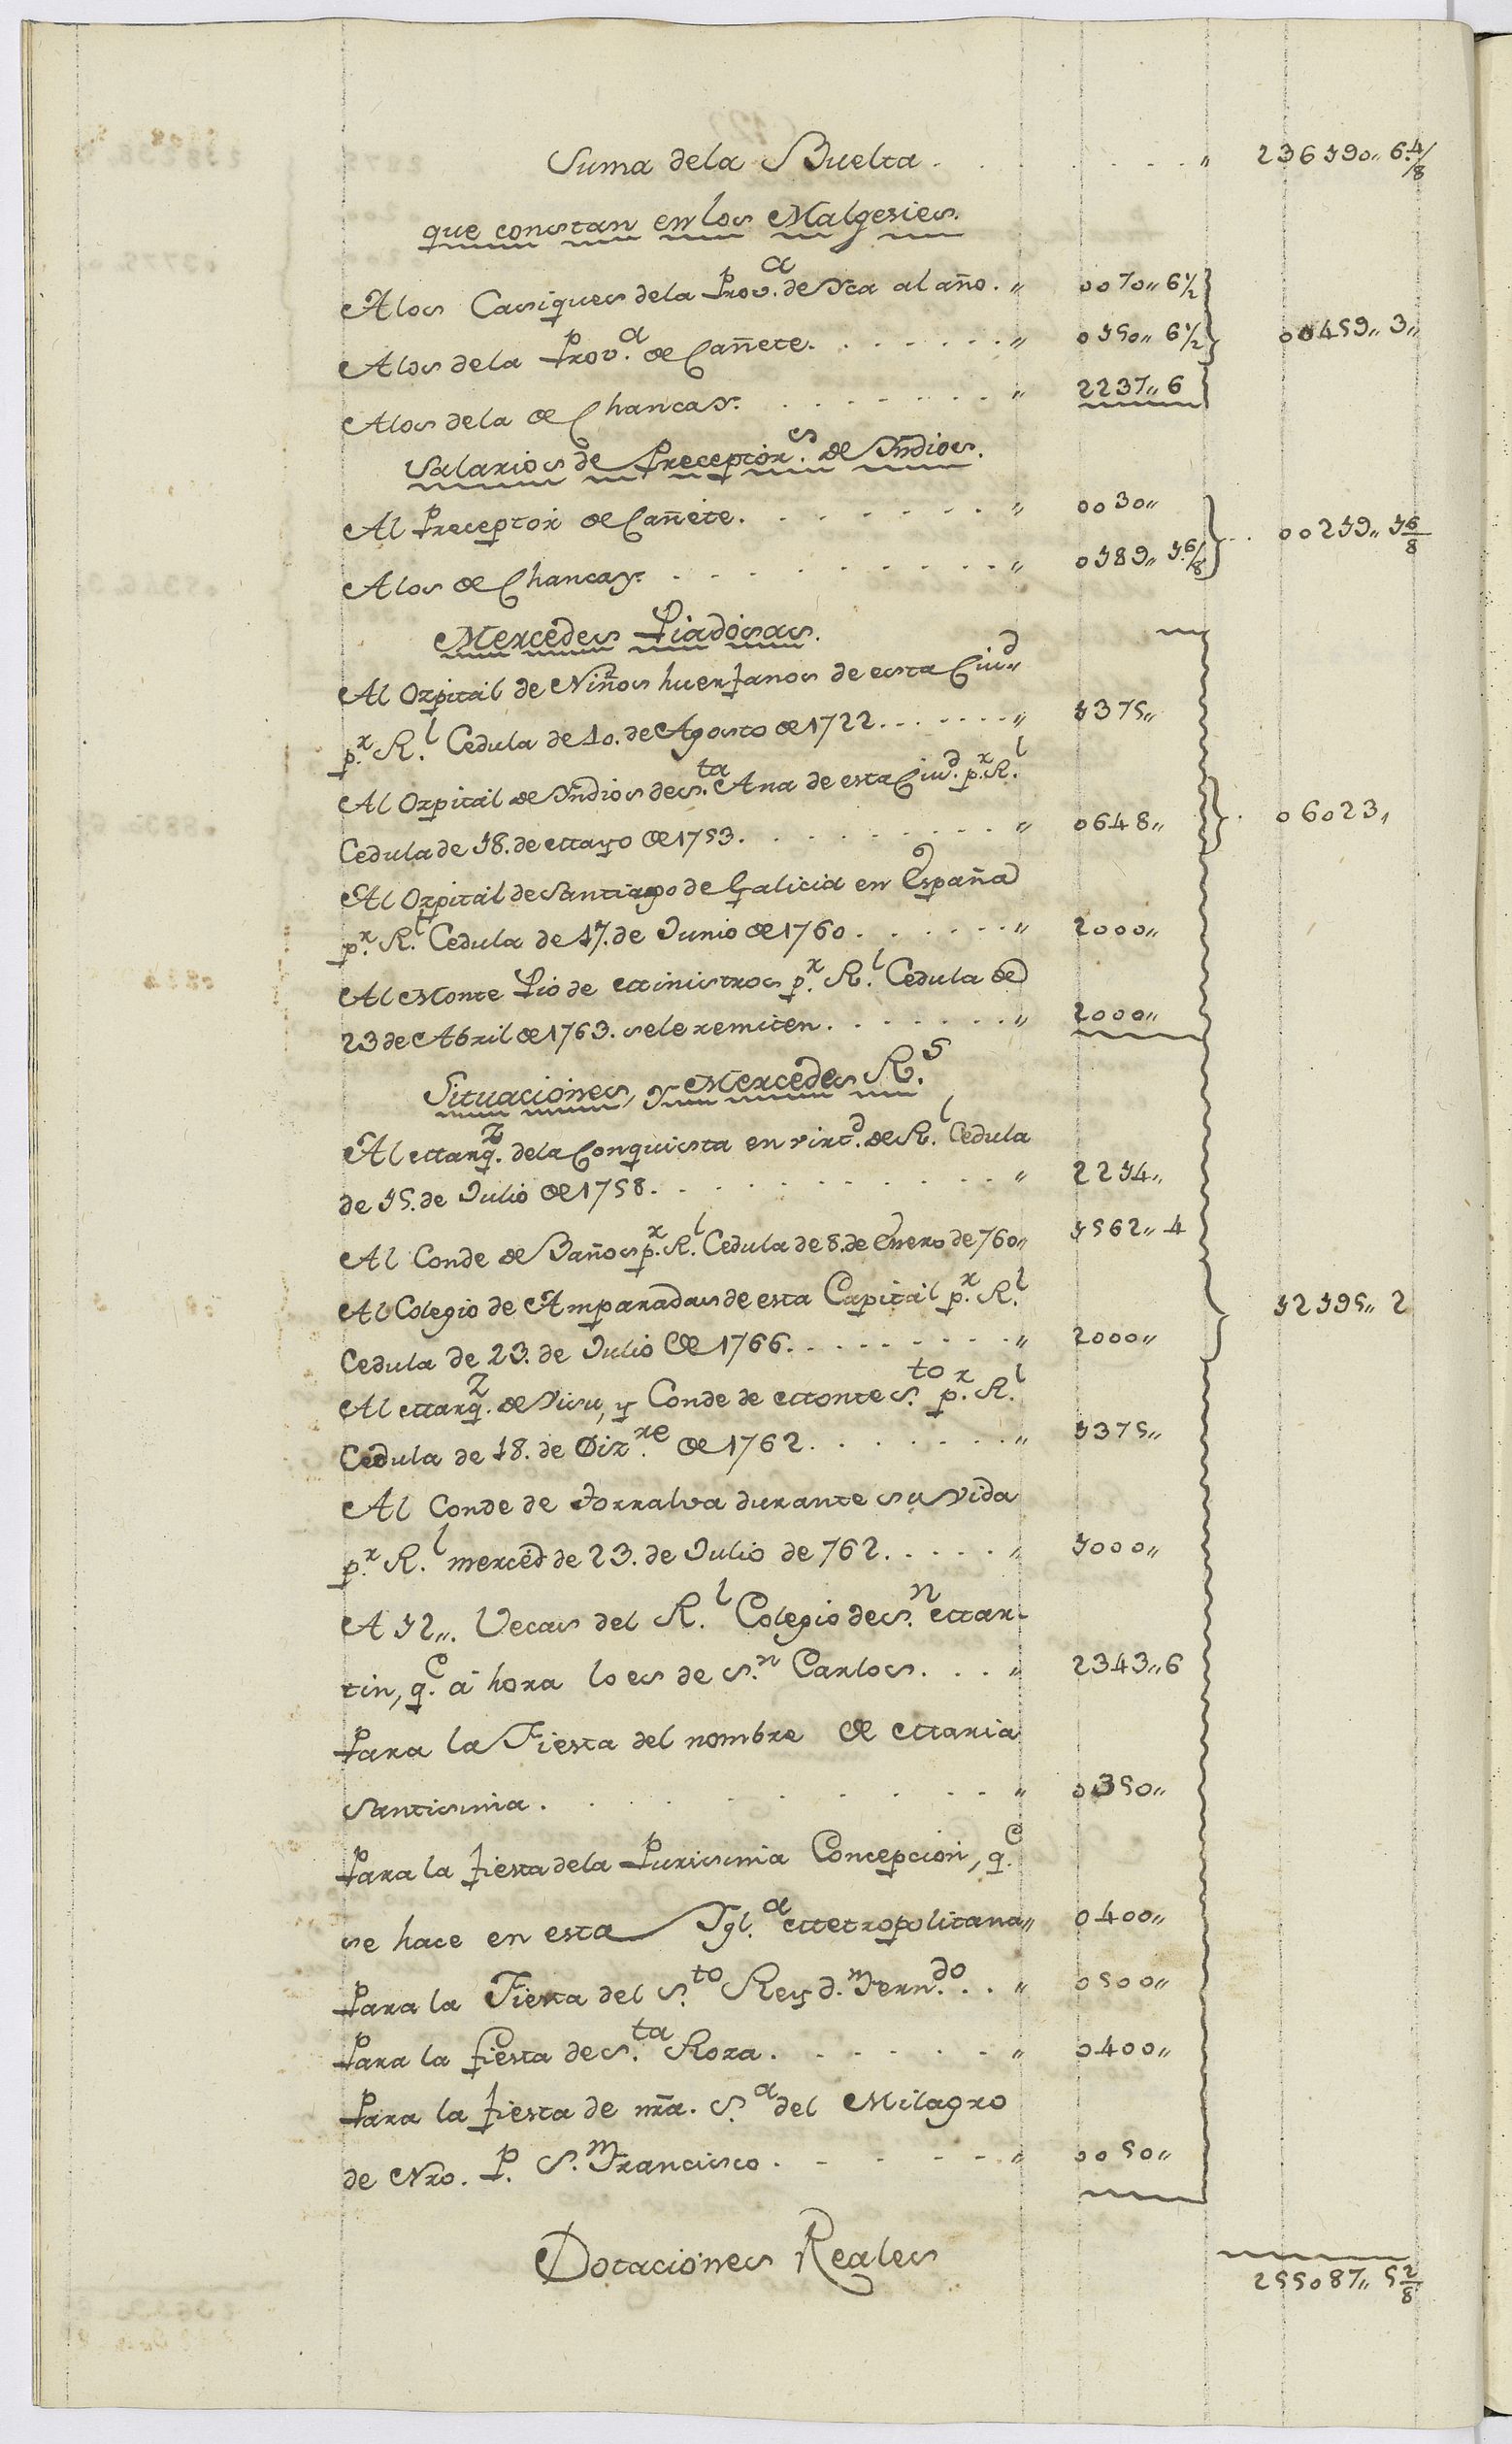 Suma dela Buelta. . . . . . . . " 236190" 6 4/8
que constan en los Margesies.
A los Casiques dela Prov.ª de Yca al año. " 0070" 6 1/2
A los dela Prov.ª de Cañete. . . . . . . " 0150" 6 1/2 00459" 3"
A los dela de Chancay. . . . . . . . " 2237" 6
Salarios de Preceptor.s de Yndios.
Al Preceptor de Cañete. . . . . . . . " 0030"
00219" 1 6/8
A los de Chancay. . . . . . . . . . " 0189" 1 6/8
Mercedes Piadosas.
Al Ozpital de Niños huerfanos de esta Ciu.d
p.r R.l Cedula de 10. de Agosto de 1722. . . . . . . " 1375"
Al Ozpital de Yndios de S.ta Ana de esta Ciu.d p.r R.l
Cedula de 18. de Mayo de 1753. . . . . . . . . " 0648" 06023,
Al Ozpital de Santiago de Galicia en España
p.r R.l Cedula de 17. de Junio de 1760. . . . . . " 2000"
Al Monte Pio de Ministros p.r R.l Cedula de
23 de Abril de 1763. se le remiten. . . . . . . " 2000"
Situaciones, y Mercedes R.s
Al Marq.z dela Conquista en virt.d de R.l Cedula
de 15. de Julio de 1758. . . . . . . . . . . " 2214"
Al Conde de Baños p.r R.l Cedula de 8. de Enero de 760" 1562" 4
Al Colegio de Amparadas de esta Capital p.r R.l 12195" 2
Cedula de 23. de Julio de 1766. . . . . . . . " 2000"
Al Marq.z de Visu, y Conde de Monte S.to p.r R.l
Cedula de 18. de Diz.re de 1762. . . . . . . " 1375"
Al Conde de Torralva durante su vida
p.r R.l merced de 23. de Julio de 762. . . . . " 1000"
A 12". Vecas del R.l Colegio de S.n Mar-
tin, q.e á hora lo es de S.n Carlos. . . . " 2343" 6
Para la Fiesta del nombre de Maria
Santisima. . . . . . . . . . . " 0350"
Para la fiesta dela Purisima Concepcion, q.e
se hace en esta Ygl.ª Metropolitana" 0400"
Para la Fiesta del S.to Rey d.n Fern.do . . " 0500"
Para la fiesta de S.ta Roza. . . . . . . " 0400"
Para la fiesta de nr̃a. S.ª del Milagro
de Nro. P. S.n Francisco. . . . . . " 0050"
Dotaciones Reales
255087" 5 2/8